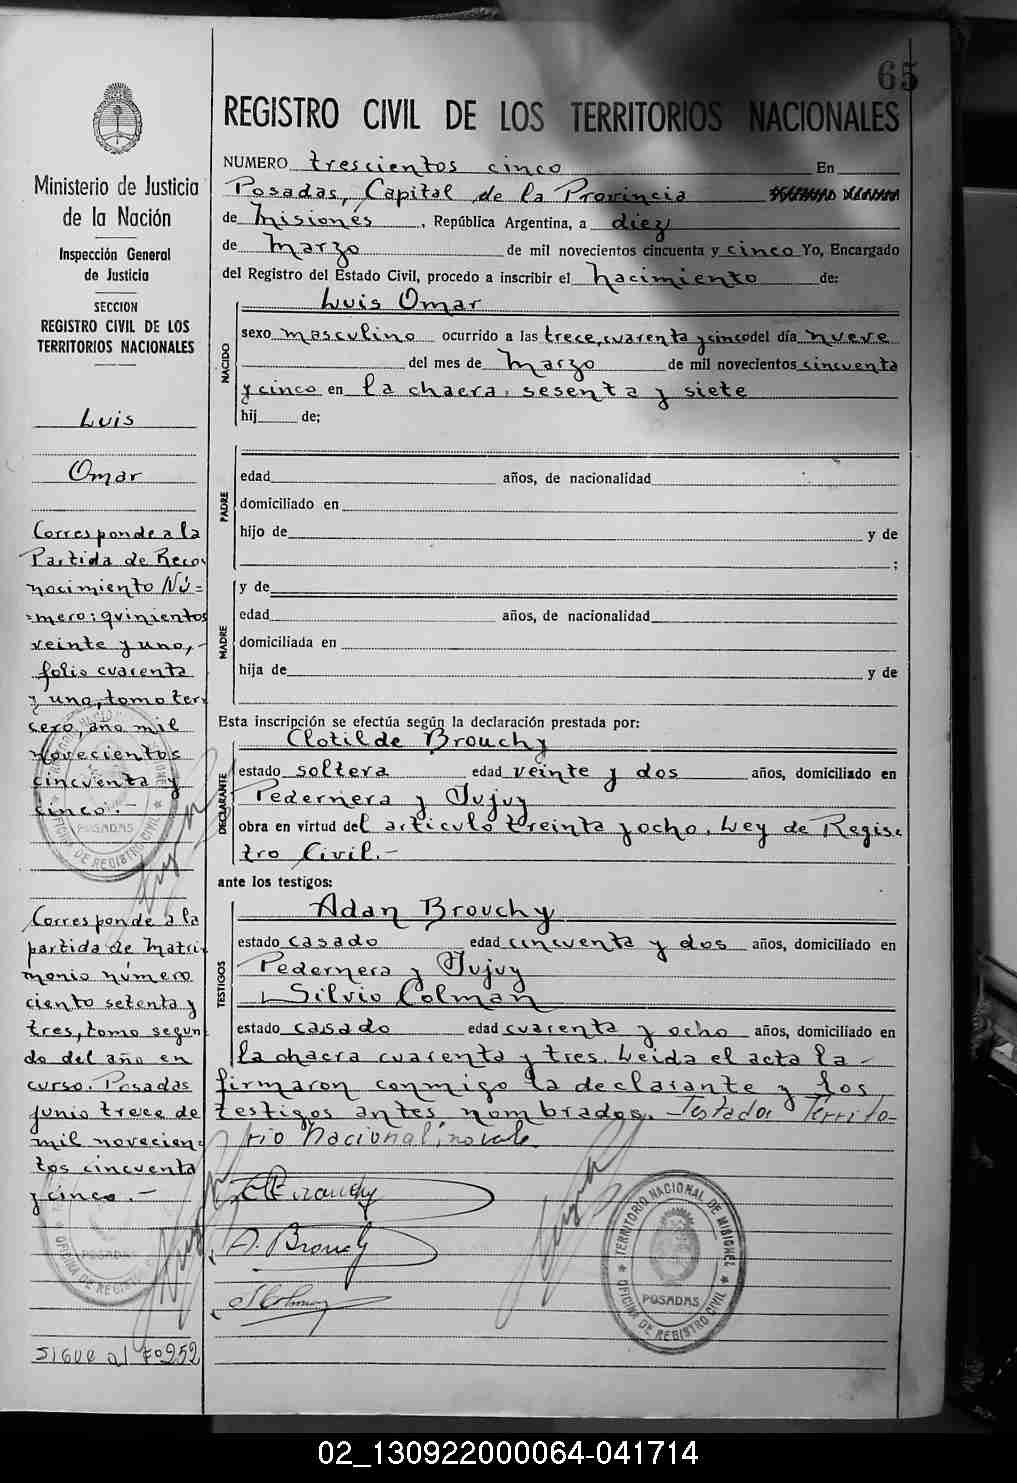 65
REGISTRO CIVIL DE LOS TERRITORIOS NACIONALES
Ministerio de Justicia
de la Nación
Inspección General
de Justicia
SECCION
REGISTRO CIVIL DE LOS
TERRITORIOS NACIONALES
Luis
Omar
Corresponde a la
Partida de Reco-
nocimiento Nú=
=mero: quinientos
veinte y uno,-
folio cuarenta
y uno, tomo ter-
cero, año mil
novecientos
cincuenta y
cinco.-
Corresponde a la
partida de Matri-
monio número
ciento setenta y
tres, tomo segun
do del año en
curso. Posadas
junio trece de
mil novecien-
tos cincuenta
y cinco.-
sigue al Fo 252
NUMERO trescientos cinco En
Posadas, Capital de la Provincia
de Misiones, República Argentina, a diez
de Marzo de mil novecientos cincuenta y cinco Yo, Encargado
del Registro del Estado Civil, procedo a inscribir el nacimiento de:
NACIDO
Luis Omar
sexo masculino ocurrido a las trece, cuarenta y cinco del día nueve
del mes de Marzo de mil novecientos cincuenta
y cinco en la chacra, sesenta y siete
hij de;
PADRE
edad años, de nacionalidad
domiciliado en
hijo de y de
;
MADRE
y de
edad años, de nacionalidad
domiciliada en
hija de y de
Esta inscripción se efectúa según la declaración prestada por:
DECLARANTE
Clotilde Brouchy
estado soltera edad veinte y dos años, domiciliado en
Pedernera y Jujuy
obra en virtud del articulo treinta y ocho, Ley de Regis-
tro Civil.-
ante los testigos:
TESTIGOS
Adan Brouchy
estado casado edad cincuenta y dos años, domiciliado en
Pedernera y Jujuy
Silvio Colman
estado casado edad cuarenta y ocho años, domiciliado en
la chacra cuarenta y tres. Leida el acta la
firmaron conmigo la declarante y los
testigos antes nombrados. Testado: Territo-
rio Nacional; no vale
C Brouchy
A. Brouchy
S Colman
TERRITORIO NACIONAL DE MISIONES
POSADAS
OFICINA DE REGISTRO CIVIL
POSADAS
OFICINA DE REGISTRO CIVIL
POSADAS
OFICINA DE REGISTRO
02_130922000064-041714